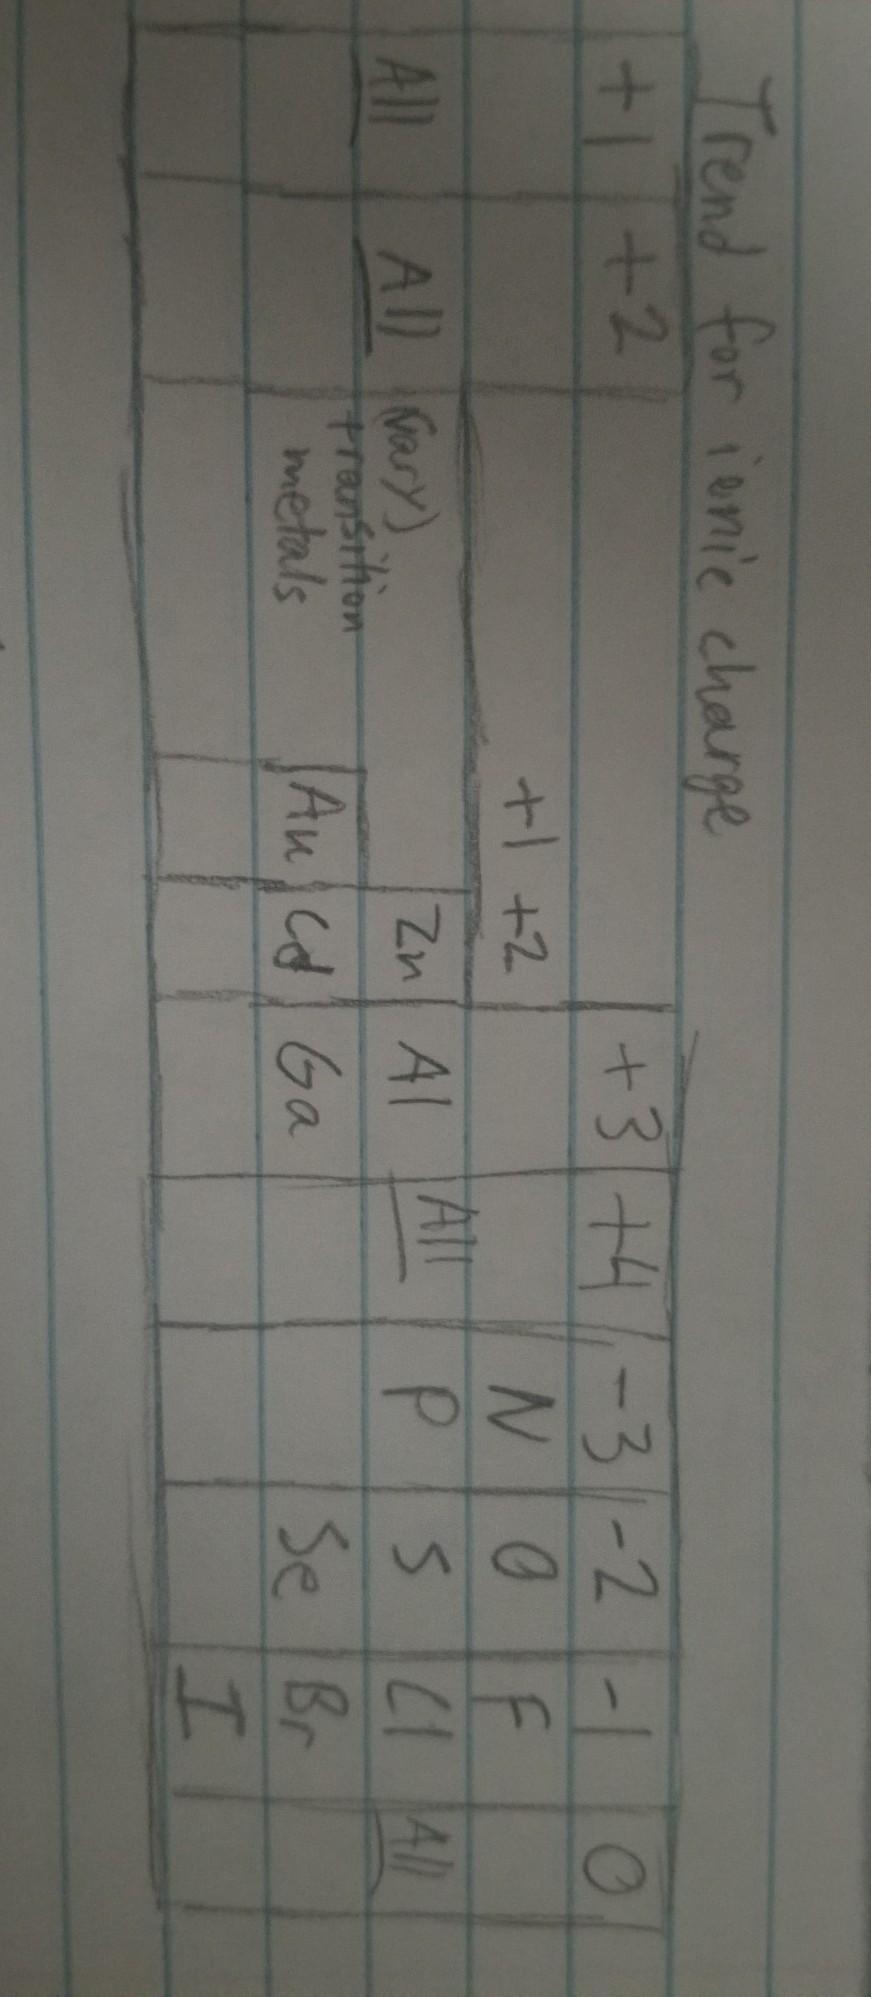 Trend for ionic charge
+1 +2 +3 +4 -3 -2 -1 0
+1 +2 N O F
All All (vary) Zn Al All P S Cl All
transition
metals Au Cd Ga Se Br
I